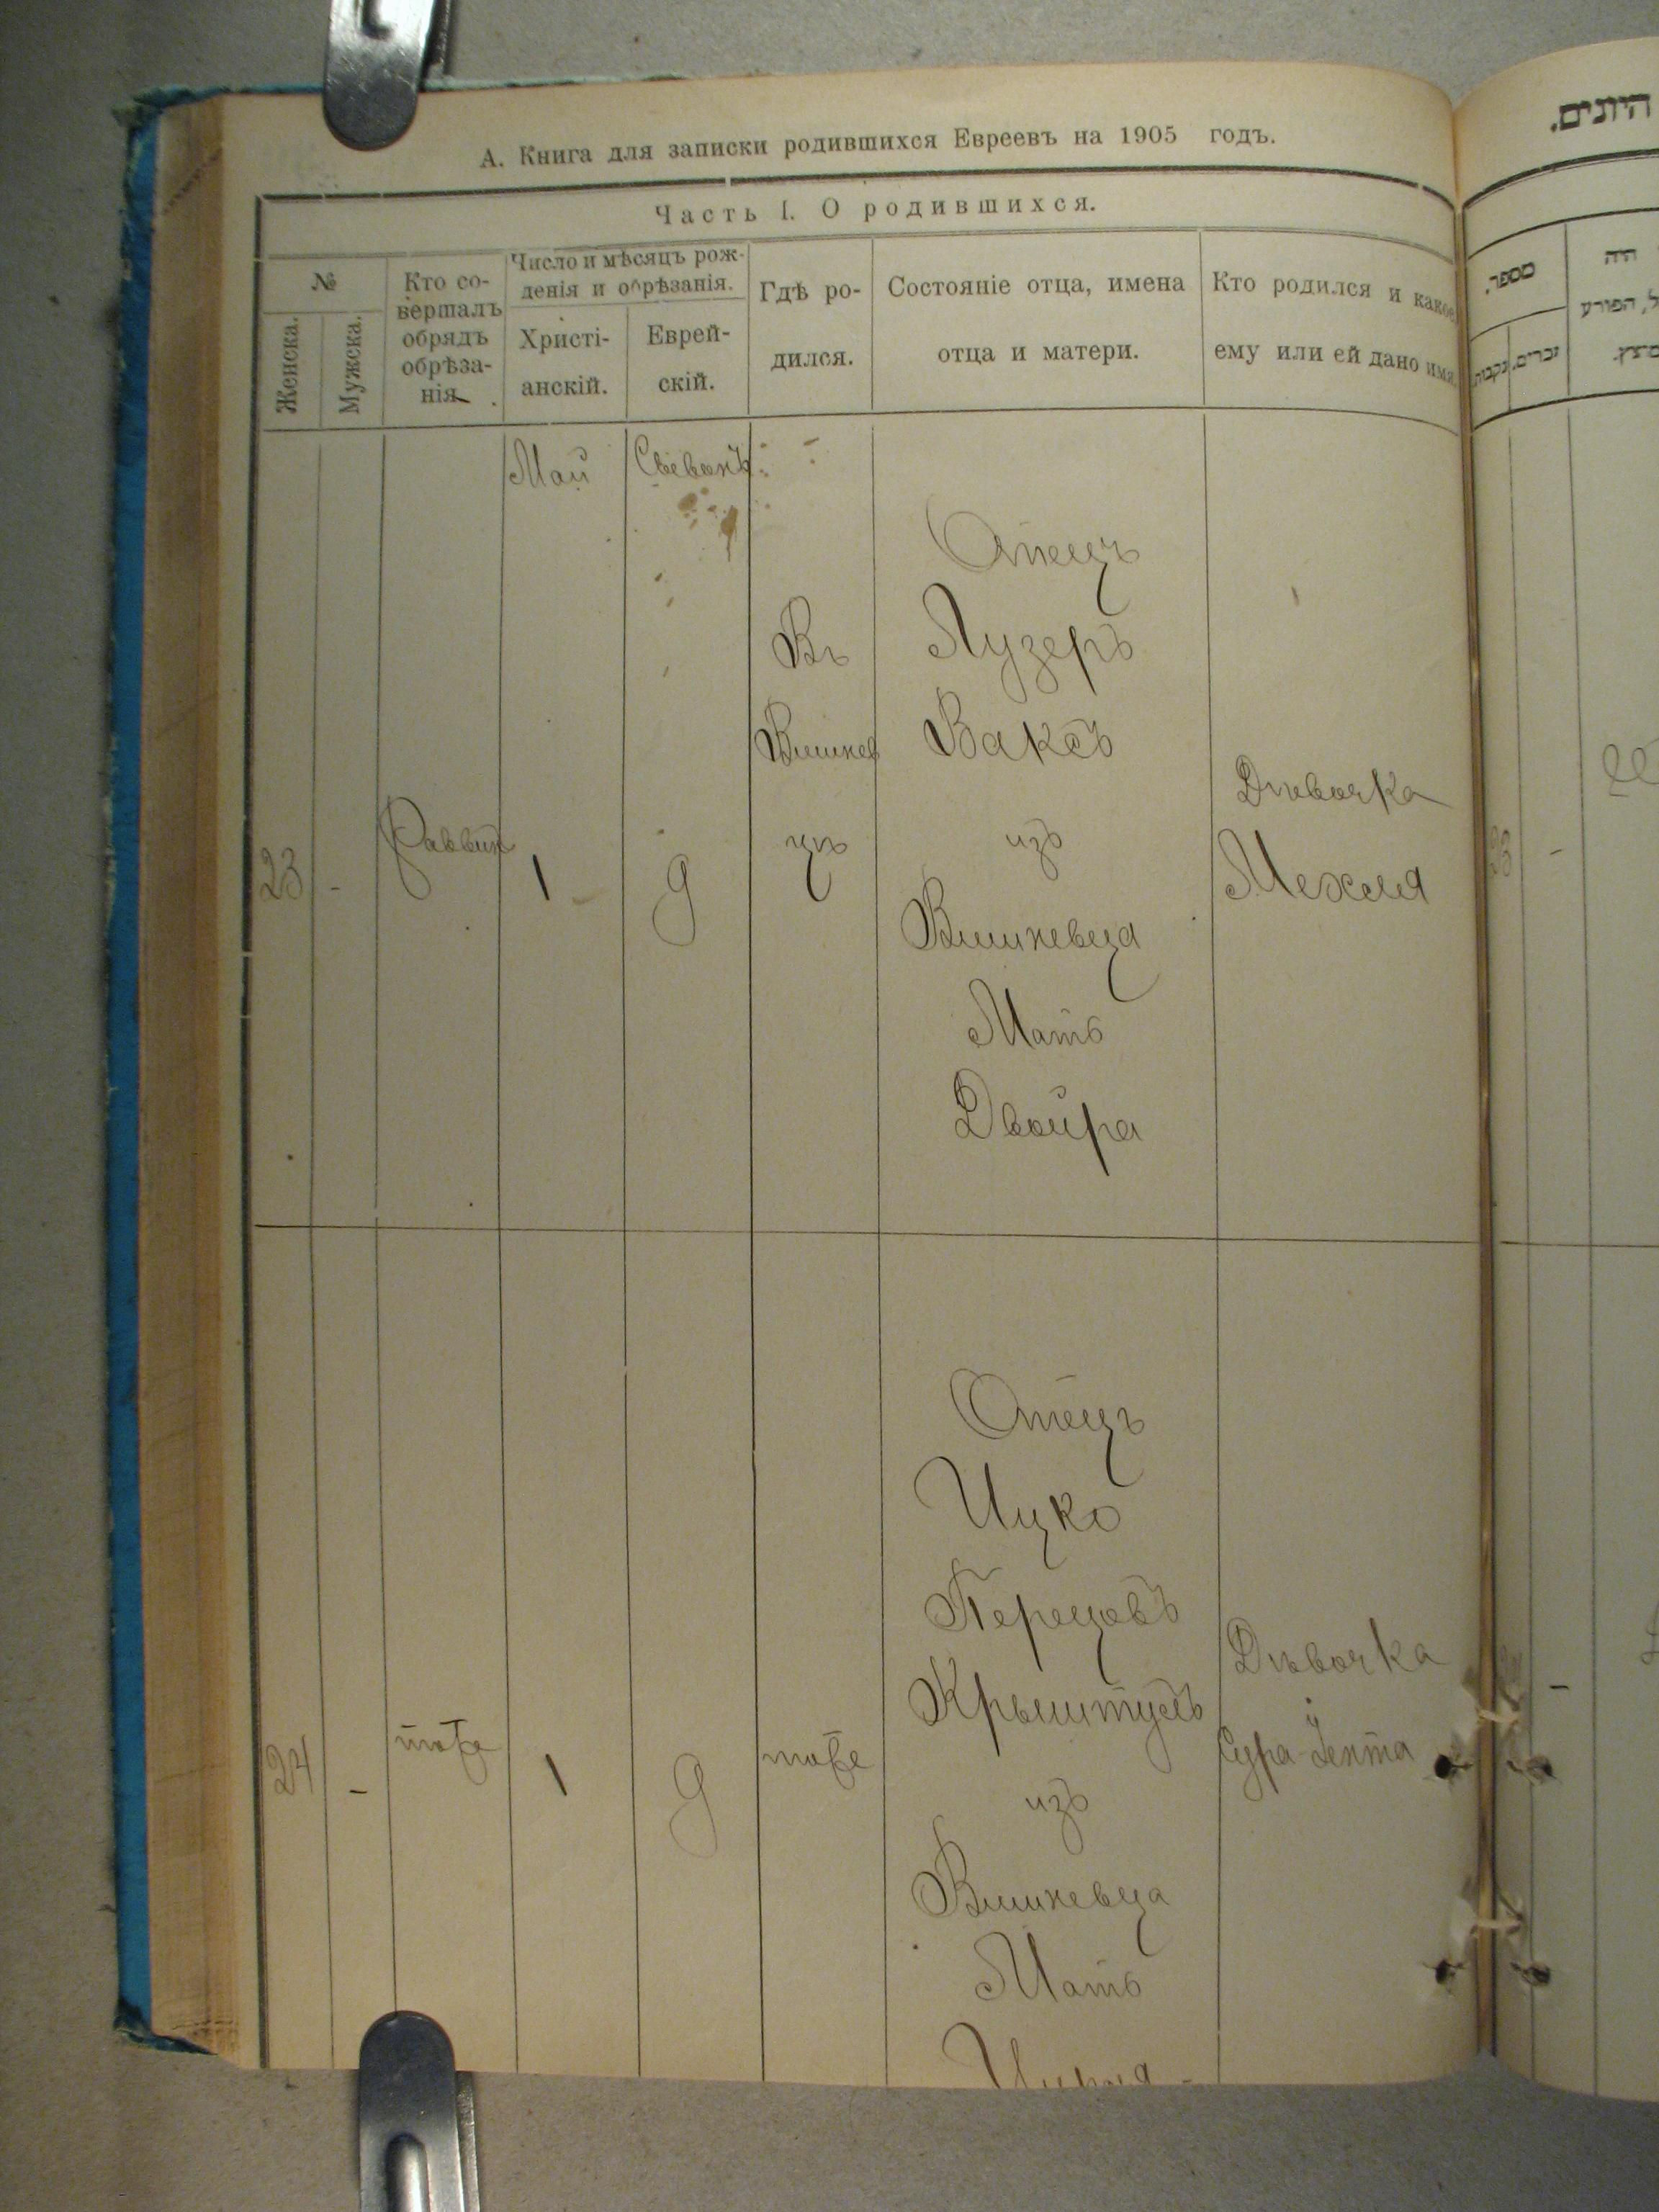 А. Книга для записки родившихся Евреевъ на 1905 годъ.
Часть I. О родившихся.
№
Женска.
Мужска.
Кто со-
вершалъ
обрядъ
обрѣза-
нія
Число и мѣсяцъ рож-
денія и обрѣзанія.
Христі-
анскій.
Еврей-
скій.
Гдѣ ро-
дился.
Состояніе отца, имена
отца и матери.
Кто родился и какое
ему или ей дано имя.
Май
23
-
Раввин
1
9
Въ
Вишнев
цѣ
Отецъ
Лузеръ
Ваксъ
изъ
Вишневца
Мать
Двойра
Дѣвочка
Мехля
24
-
тоже
1
9
тоже
Отецъ
Ицко
Перецовъ
из
Вишневца
Мать
Дѣвочка
Сура-Іента
היונים.
מספר.
נקבות.
זכרים.
היה
23
-
-